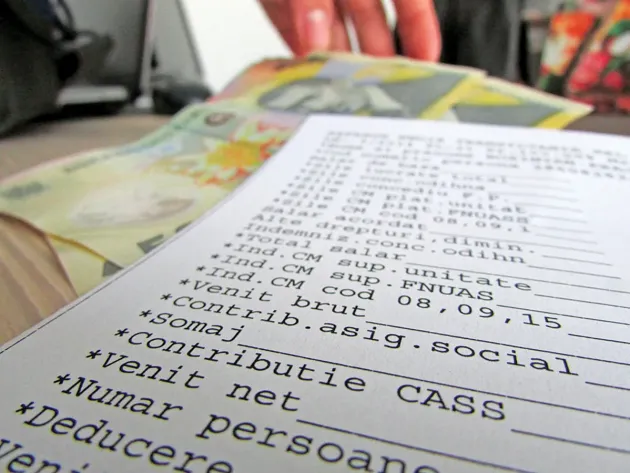 lucrate total
concediu F.P.
*Zile CM plat.unitat
*Zile CM plat.FNUASS
*Zile CM cod 08,09,1
Salar acordat
Alte drepturi,dimin.
Indemniz.conc.odihn
*Total salar
*Ind.CM sup.unitate
*Ind.CM sup.FNUAS
*Ind.CM cod 08,09,15
*Venit brut
*Contrib.asig.social
*Somaj
*Contributie CASS
*Venit net
*Numar persoane
*Deducere
Venit